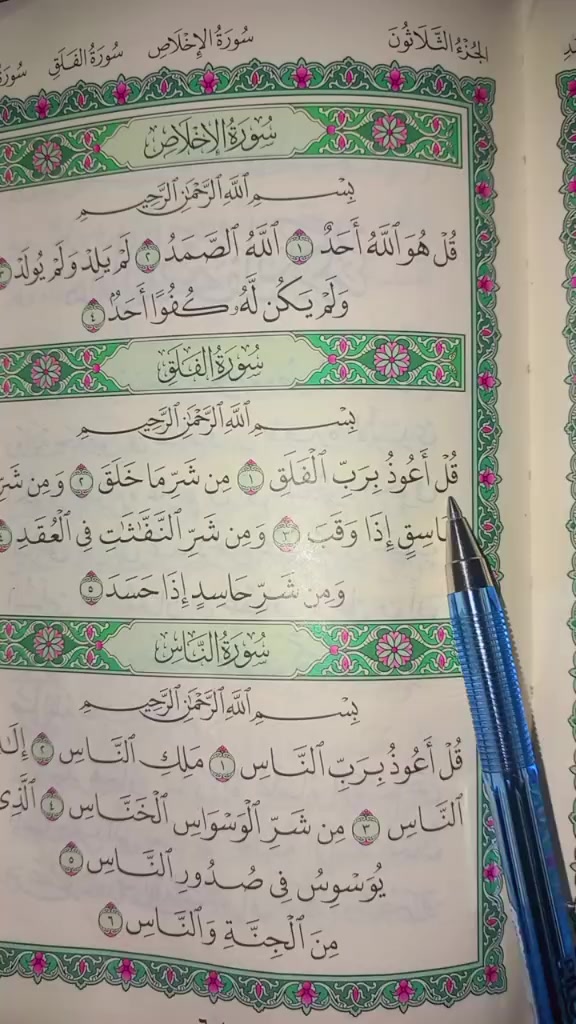 الجُزْءُ الثَّلَاثُونَ سُورَةُ الإِخْلَاصِ سُورَةُ الفَلَقِ
سُورَةُ الإِخْلَاصِ
بِسْمِ ٱللَّهِ ٱلرَّحْمَٰنِ ٱلرَّحِيمِ
قُلْ هُوَ ٱللَّهُ أَحَدٌ ١ ٱللَّهُ ٱلصَّمَدُ ٢ لَمْ يَلِدْ وَلَمْ يُولَدْ ٣
وَلَمْ يَكُن لَّهُۥ كُفُوًا أَحَدٌۢ ٤
سُورَةُ الفَلَقِ
بِسْمِ ٱللَّهِ ٱلرَّحْمَٰنِ ٱلرَّحِيمِ
قُلْ أَعُوذُ بِرَبِّ ٱلْفَلَقِ ١ مِن شَرِّ مَا خَلَقَ ٢ وَمِن شَرِّ
إِذَا وَقَبَ ٣ وَمِن شَرِّ ٱلنَّفَّٰثَٰتِ فِى ٱلْعُقَدِ ٤
وَمِن شَرِّ حَاسِدٍ إِذَا حَسَدَ ٥
سُورَةُ النَّاسِ
بِسْمِ ٱللَّهِ ٱلرَّحْمَٰنِ ٱلرَّحِيمِ
قُلْ أَعُوذُ بِرَبِّ ٱلنَّاسِ ١ مَلِكِ ٱلنَّاسِ ٢
ٱلنَّاسِ ٣ مِن شَرِّ ٱلْوَسْوَاسِ ٱلْخَنَّاسِ ٤ ٱلَّذِى
يُوَسْوِسُ فِى صُدُورِ ٱلنَّاسِ ٥
مِنَ ٱلْجِنَّةِ وَٱلنَّاسِ ٦